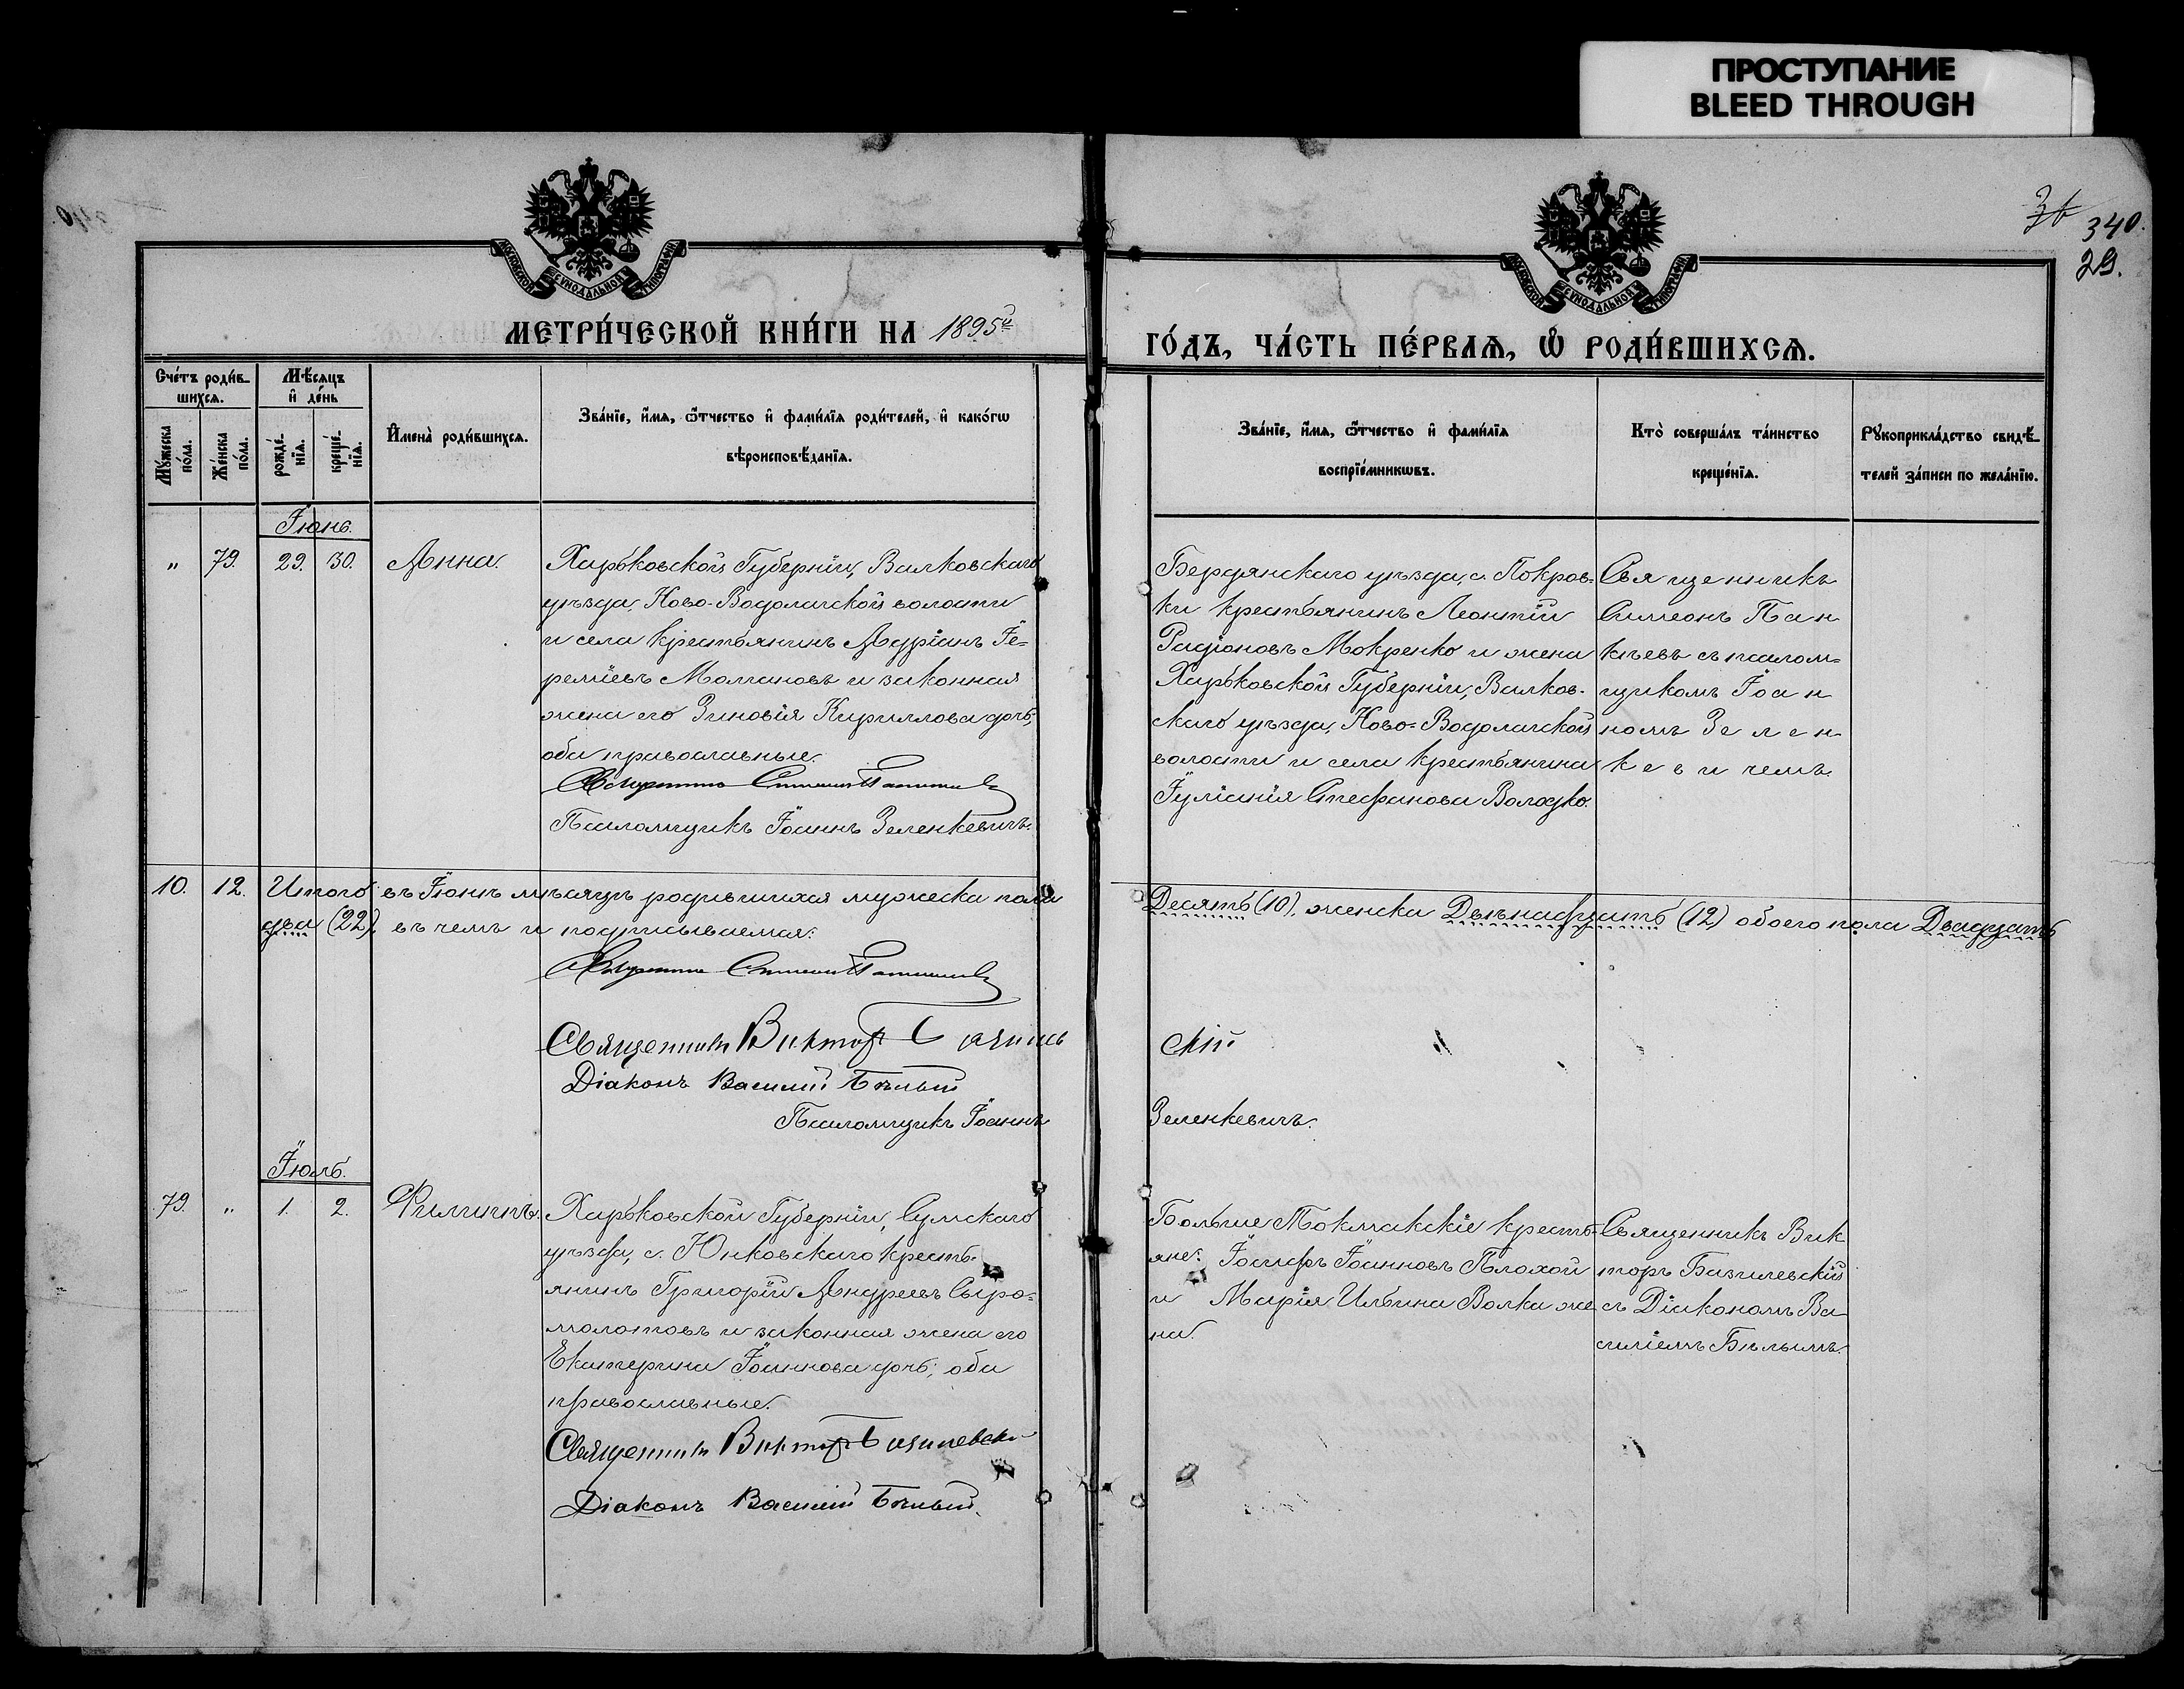 ПРОСТУПАНИЕ
BLEED THROUGH
340.
29.
МОСКОВСКОЙ СѴНОДАЛЬНОЙ ТИПОГРАФІИ
МОСКОВСКОЙ СѴНОДАЛЬНОЙ ТИПОГРАФІИ
МЕТРИ́ЧЕСКОЙ КНИ́ГИ НА 1895й
ГО́ДЪ, ЧА́СТЬ ПЕ́РВАѦ, Ѡ РОДИ́ВШИХСѦ.
Сче́тъ роди́в-
шихсѧ.
Мꙋ́жеска по́ла.
Же́нска по́ла.
Мѣ́сѧцъ
и҆ де́нь
рожде́-
нїѧ.
креще́-
нїѧ.
И҆мена̀ роди́вшихсѧ.
Зва́нїе, и҆́мѧ, ѻ҆́тчество и҆ фами́лїѧ роди́телей, и҆ како́гѡ
вѣроисповѣ́данїѧ.
Зва́нїе, и҆́мѧ, ѻ҆́тчество и҆ фами́лїѧ
воспрїе́мникѡвъ.
Кто̀ соверша́лъ та́инство
креще́нїѧ.
Рꙋкоприкла́дство свидѣ́-
телей за́писи по жела́нїю.
Іюнь.
„ 79. 29. 30. Анна.
Харьковской Губерніи, Валковскаго
уѣзда, Ново-Водолагской волости
и села крестьянинъ Адріанъ Іе-
реміевъ Молчановъ и законная
жена его Зиновія Кириллова дочь;
оба православные.
Священникъ Симеонъ
Псаломщикъ Іоаннъ Зеленкевичъ.
Бердянскаго уѣзда, с. Покров-
ки крестьянинъ Леонтій
Радіоновъ Мокренко и жена
Харьковской Губерніи, Валков-
скаго уѣзда, Ново-Водолагской
волости и села крестьянина
Іуліанія Стефанова Володко.
Священникъ
Симеонъ Пан
кѣевъ съ псалом-
щикомъ Іоан
номъ Зелен
кевичемъ.
10. 12. Итого въ Іюнѣ мѣсяцѣ родившихся мужеска пола
Десять (10), женска Двѣнадцать (12) обоего пола Двадцать
два (22), въ чемъ и подписываемся:
Священникъ Симеонъ
Священникъ Викторъ Базилев
скій
Діаконъ Василій Бѣлый
Псаломщикъ Іоаннъ
Зеленкевичъ.
Іюль.
79. „ 1. 2. Филиппъ.
Харьковской Губерніи, Сумскаго
уѣзда, с. Юнковскаго кресть-
янинъ Григорій Андреевъ Сыро-
молотовъ и законная жена его
Екатерина Іоаннова дочь; оба
православные.
Священникъ Викторъ Базилевскій
Діаконъ Василій Бѣлый.
Больше Токмакскіе кресть-
яне: Іосифъ Іоанновъ Плохой
и Марія Ильина Волка же-
на.
Священникъ Вик
торъ Базилевскій
съ Діакономъ Ва-
силіемъ Бѣлымъ.